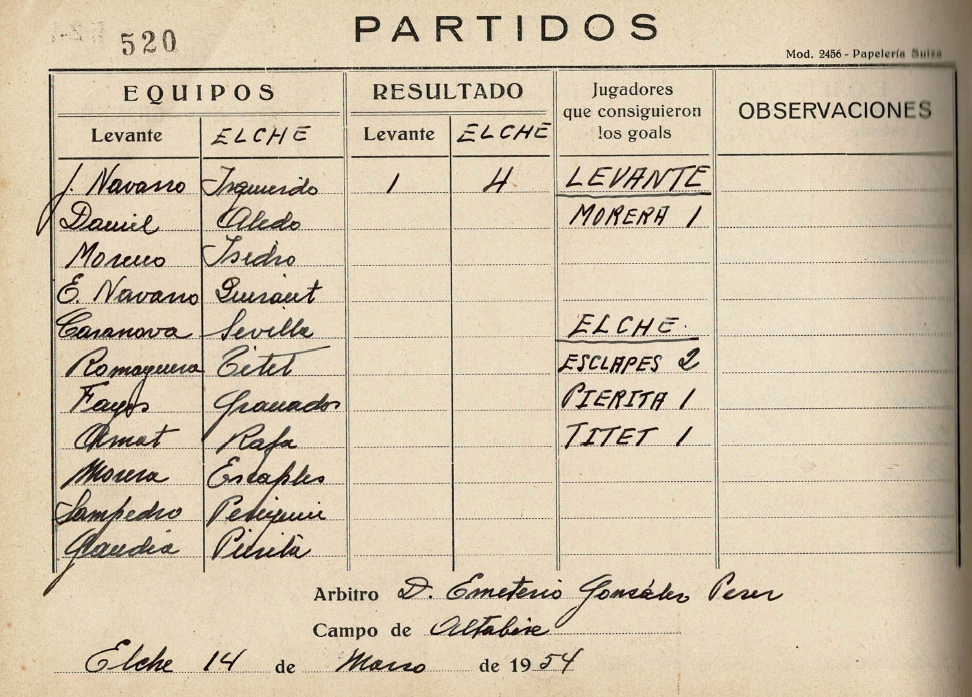 520
PARTIDOS
Mod. 2456 - Papelería Suiza
EQUIPOS RESULTADO Jugadores que consiguieron los goals OBSERVACIONES
Levante ELCHE Levante ELCHE
J. Navarro Izquierdo 1 4 LEVANTE
Daniel Aledo MORERA 1
Moreno Isidro
E. Navarro Quirant
Casanova Sevilla ELCHE
Romaguera Titet ESCLAPES 2
Fayos Granados PIERITA 1
Amat Rafa TITET 1
Morera Escaples
Sampedro
Gandia Pierita
Arbitro D. Emeterio González Perez
Campo de Altabix
Elche 14 de Marzo de 1954